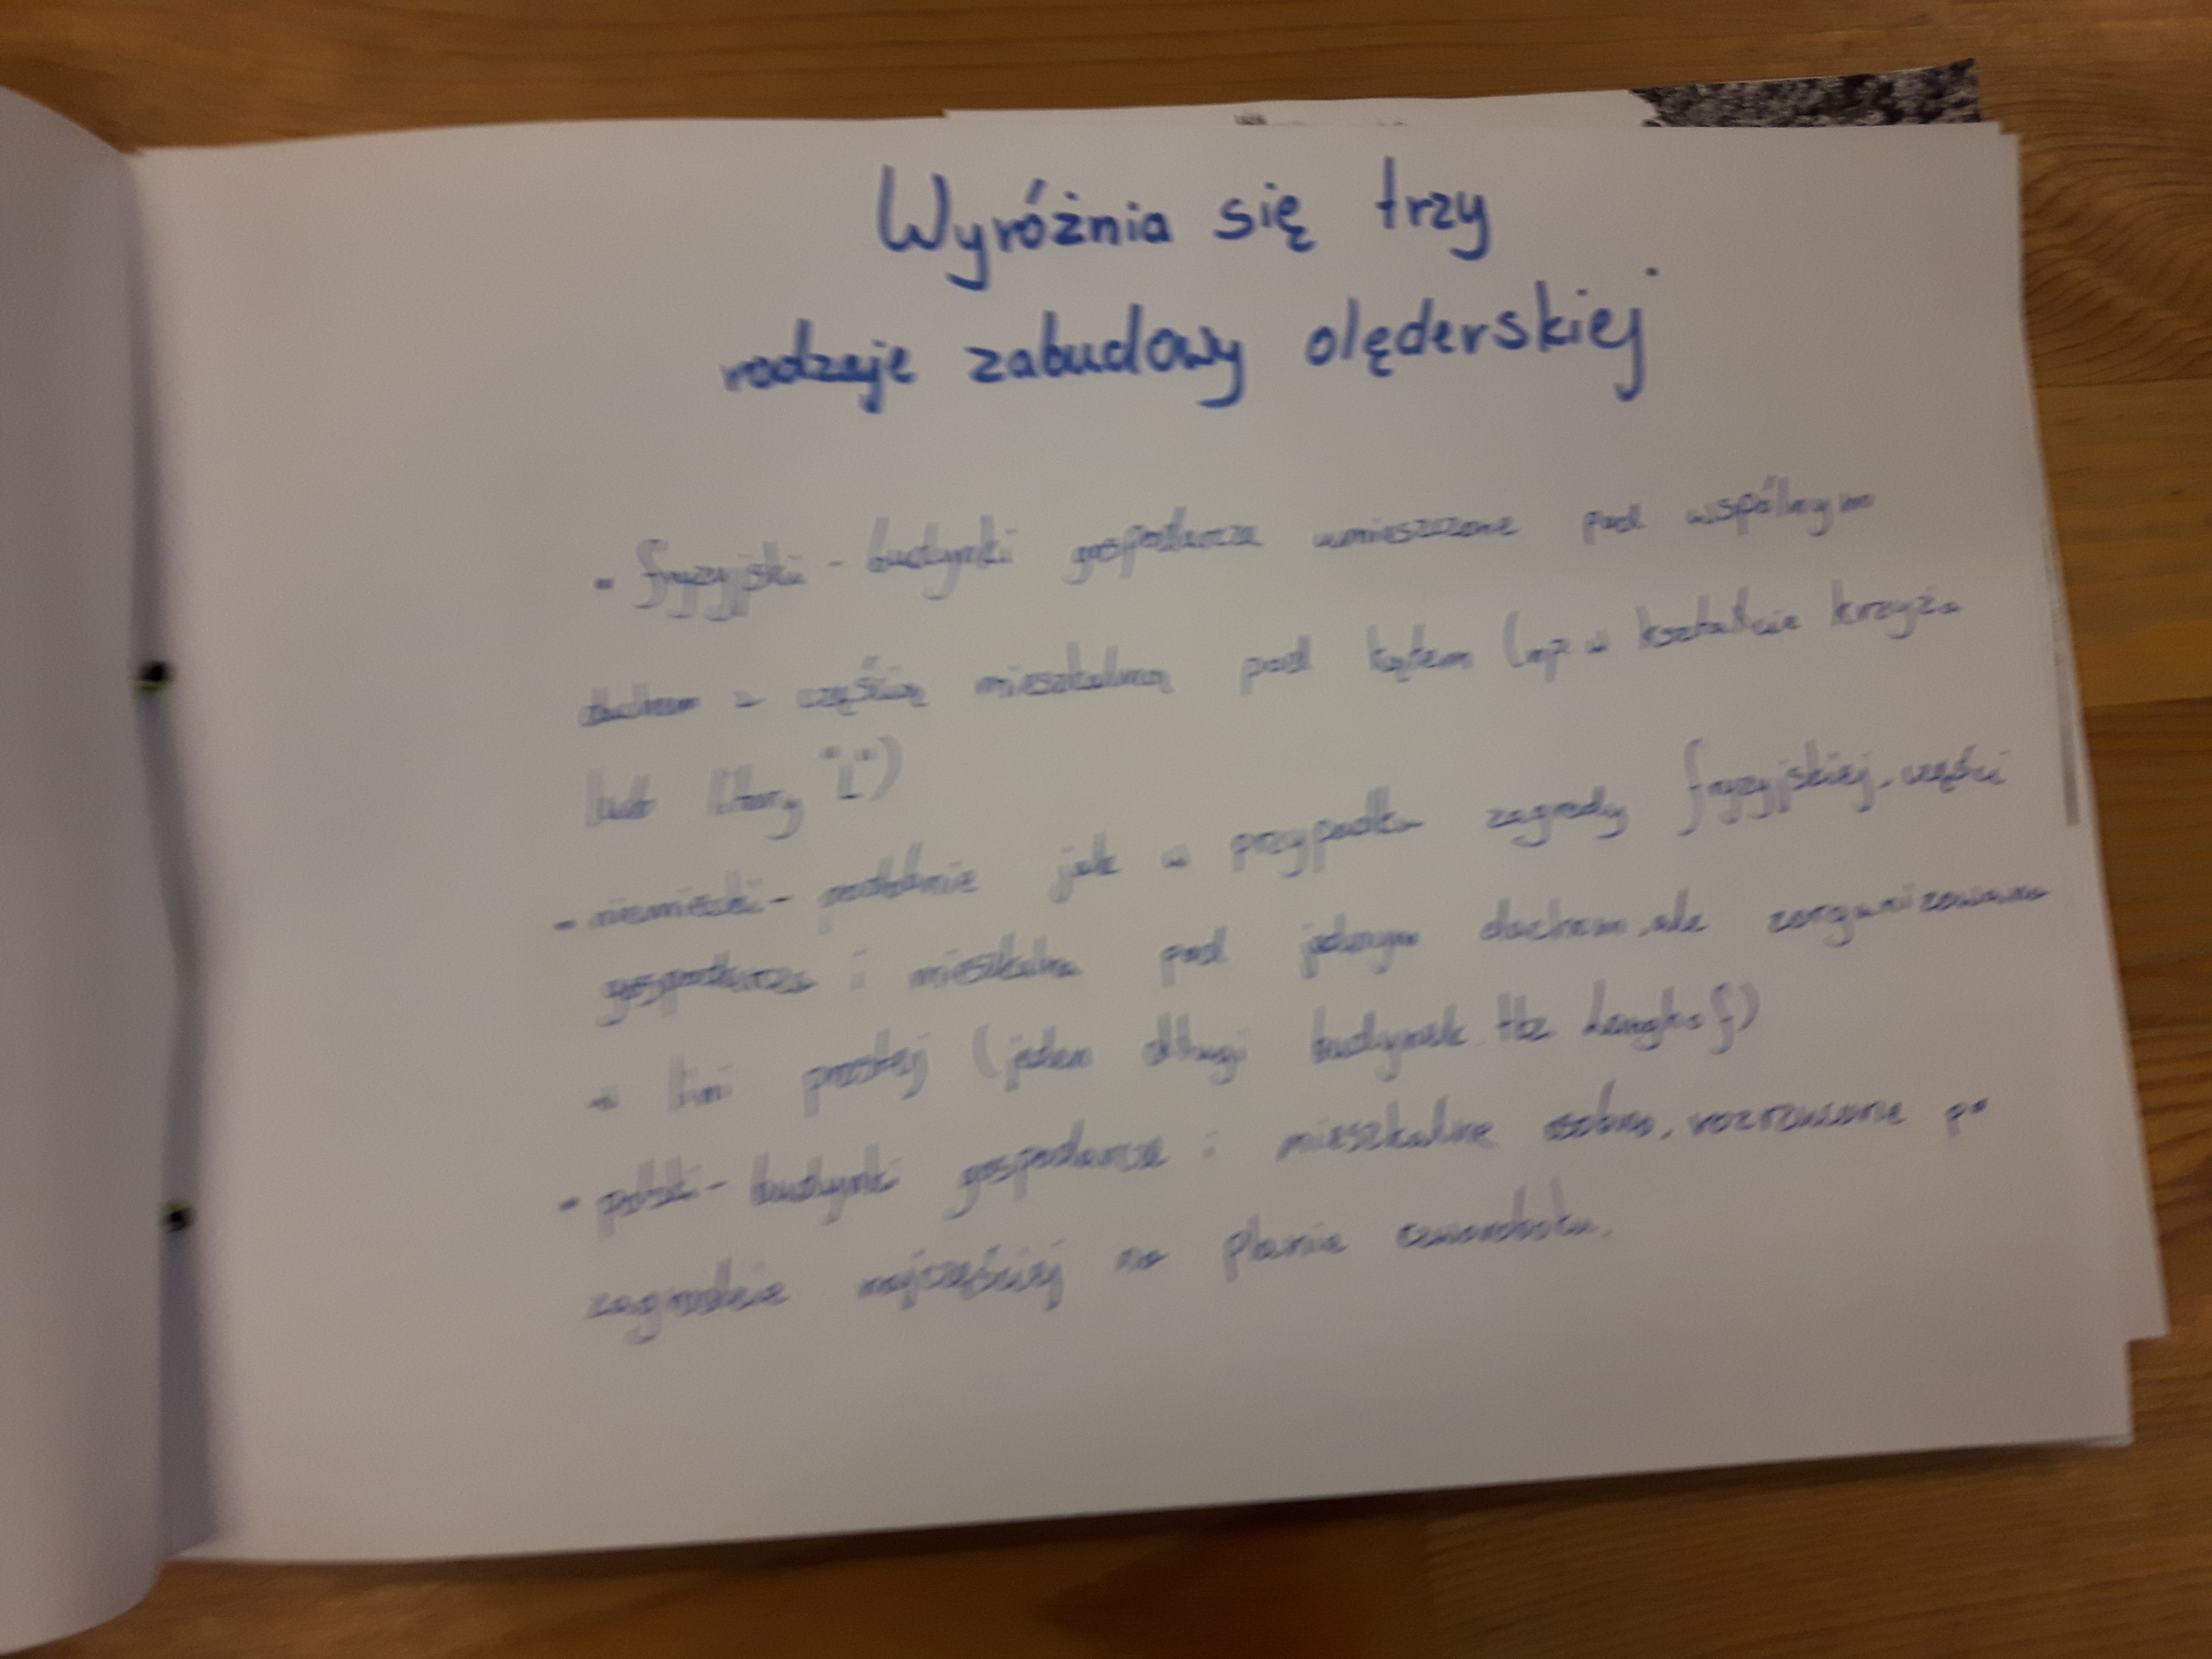 Wyróżnia się trzy
rodzaje zabudowy olęderskiej
- fryzyjski - budynki gospodarcze umieszczone pod wspólnym
dachem z częścią mieszkalną pod kątem (np w kształcie krzyża
lub litery "L")
- niemiecki - podobnie jak w przypadku zagrody fryzyjskiej, części
gospodarcza i mieszkalna pod jednym dachem, ale zorganizowano
w lini prostej (jeden długi budynek tzz Langhof)
- polski - budynki gospodarcze i mieszkalne osobno, rozrzucone po
zagrodzie najczęściej na planie czworoboku.